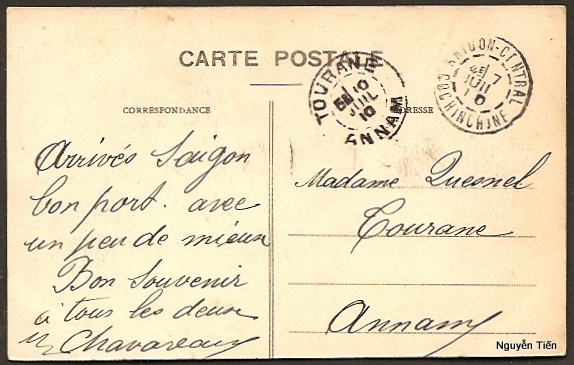 CARTE POSTALE
CORRESPONDANCE
ADRESSE
TOURANE
10
JUIL
10
ANNAM
SAIGON-CENTRAL
7
JUIL
10
COCHINCHINE
Arrivés Saigon
bon port. avec
un peu de mieux
Bon Souvenir
à tous les deux
Chavareau
Madame Quesnel
Tourane
Annam
Nguyễn Tiến